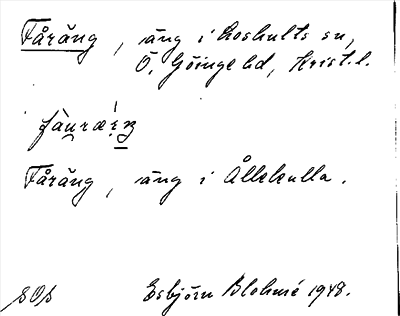 Fåräng, äng i Loshults sn,
Ö. Göinge hd, Krist. l.
Fåräng, äng i Ållekulla.
SOD Esbjörn Blohmé 1948.